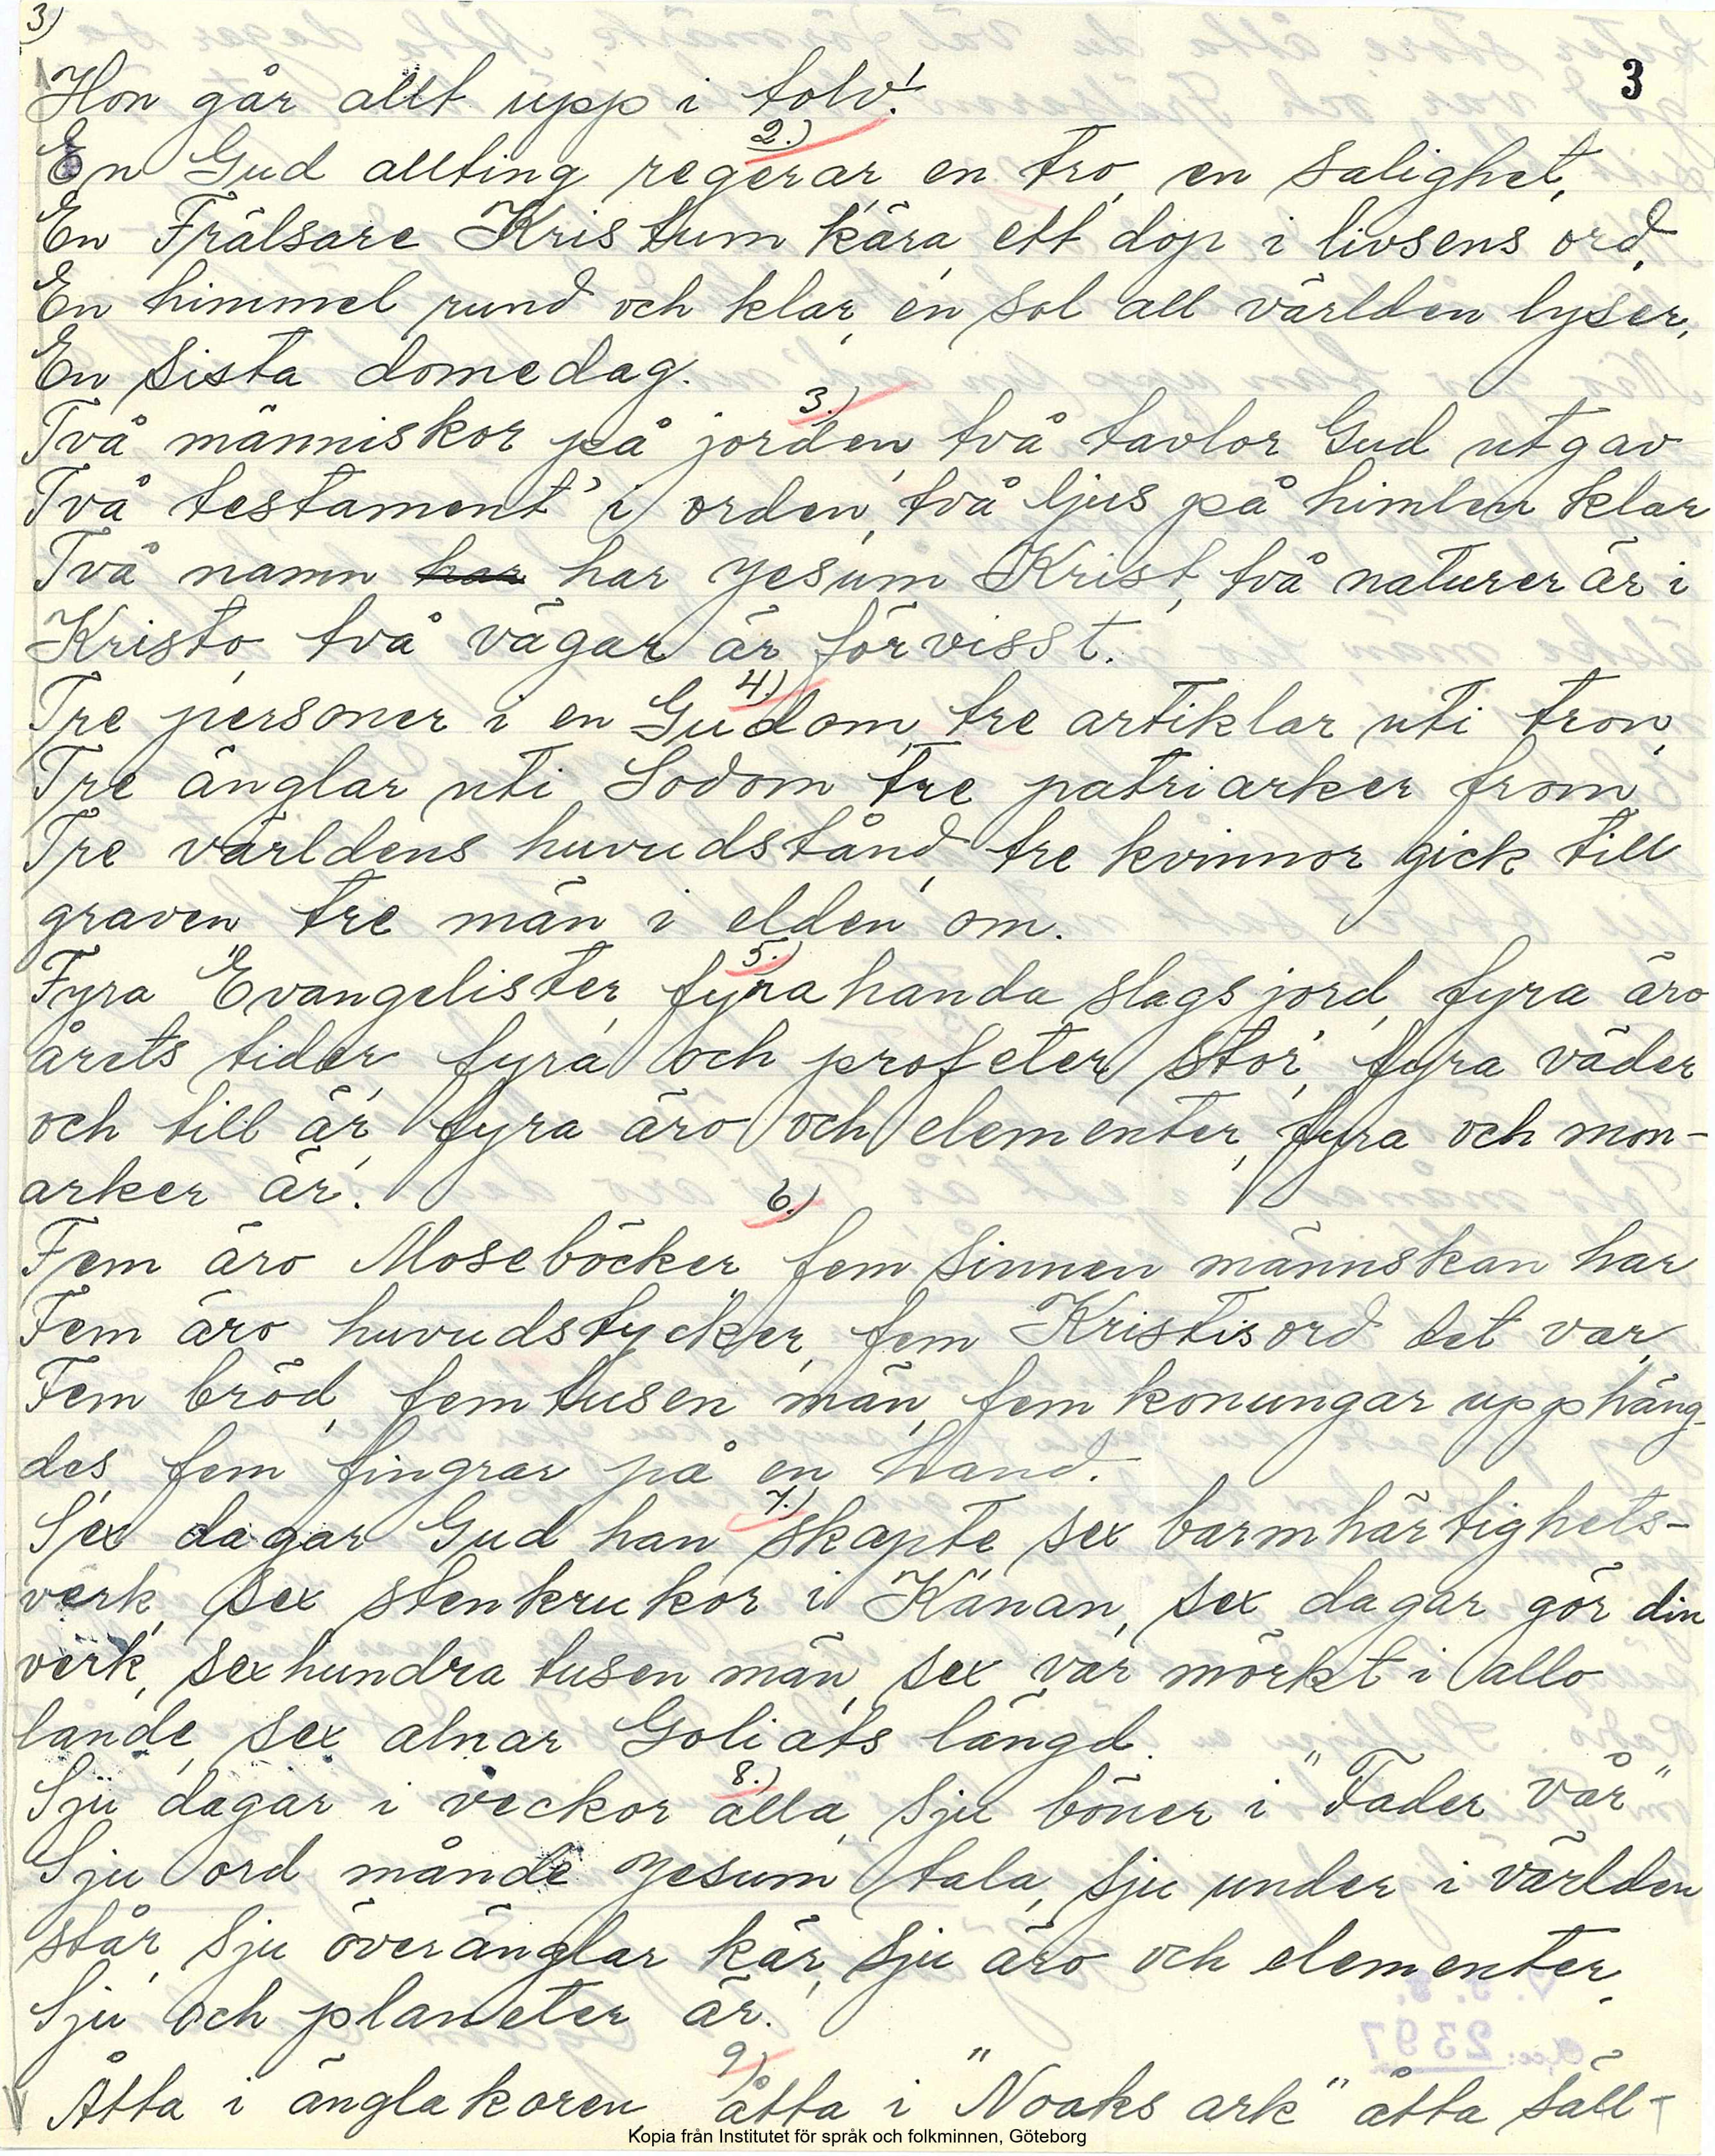 3)
3
Hon går allt upp i tolv!
2.)
En Gud allting regerar en tro, en salighet,
En Frälsare Kristum kära, ett dop i livsens ord,
En himmel rund och klar, en sol all världen lyser,
En sista domedag.
3.)
Två människor på jorden, två tavlor Gud utgav
Två testament' i orden, två ljus på himlen klar
Två namn har har Jesum Krist, två naturer är i
Kristo, två vägar är förvisst.
4.)
Tre personer i en Gudom, tre artiklar uti tron,
Tre änglar uti Sodom tre patriarker from,
Tre världens huvudstånd, tre kvinnor gick till
graven tre män i elden om.
5.)
Fyra Evangelister, fyrahanda slags jord, fyra äro
årets tider, fyra och profeter stor, fyra väder
och till är, fyra äro och elementer, fyra och mon-
arker är.
6.)
Fem äro Moseböcker fem sinnen människan har
Fem äro huvudstycker, fem Kristisord det var,
Fem bröd, femtusen män, fem konungar upphäng-
des, fem fingrar på en hand.
7.)
Sex dagar Gud han skapte sex barmhärtighets-
verk, sex stenkrukor i Känan, sex dagar gör din
verk, sexhundra tusen män, sex var mörkt i allo
lande, sex alnar Goliats längd.
8.)
Sju dagar i veckor alla, sju böner i "Fader vår"
Sju ord månde Jesum tala, sju under i världen
står, sju överänglar kär, sju äro och elementer,
Sju och planeter är.
9)
Åtta i änglakoren, åtta i "Noaks ark" åtta säll-
Kopia från Institutet för språk och folkminnen, Göteborg